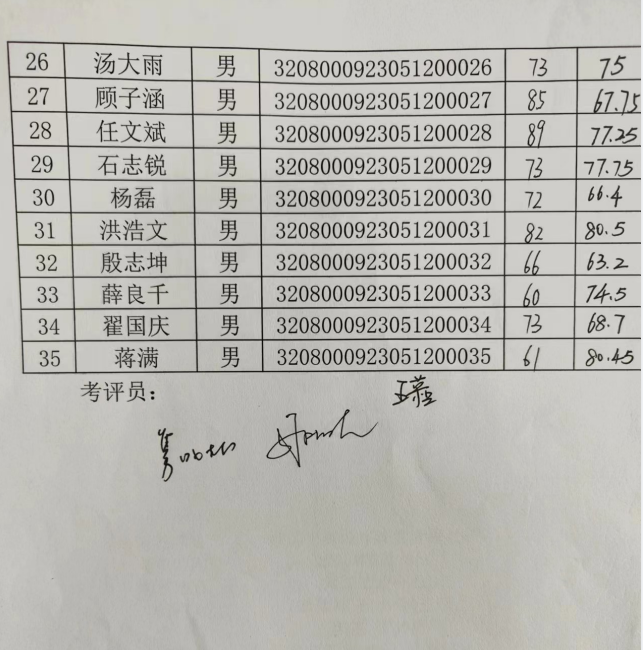 26 汤大雨 男 3208000923051200026 73 75
27 顾子涵 男 3208000923051200027 85 67.75
28 任文斌 男 3208000923051200028 89 77.25
29 石志锐 男 3208000923051200029 73 77.75
30 杨磊 男 3208000923051200030 72 66.4
31 洪浩文 男 3208000923051200031 82 80.5
32 殷志坤 男 3208000923051200032 66 63.2
33 薛良千 男 3208000923051200033 60 74.5
34 翟国庆 男 3208000923051200034 73 68.7
35 蒋满 男 3208000923051200035 61 80.45
考评员：